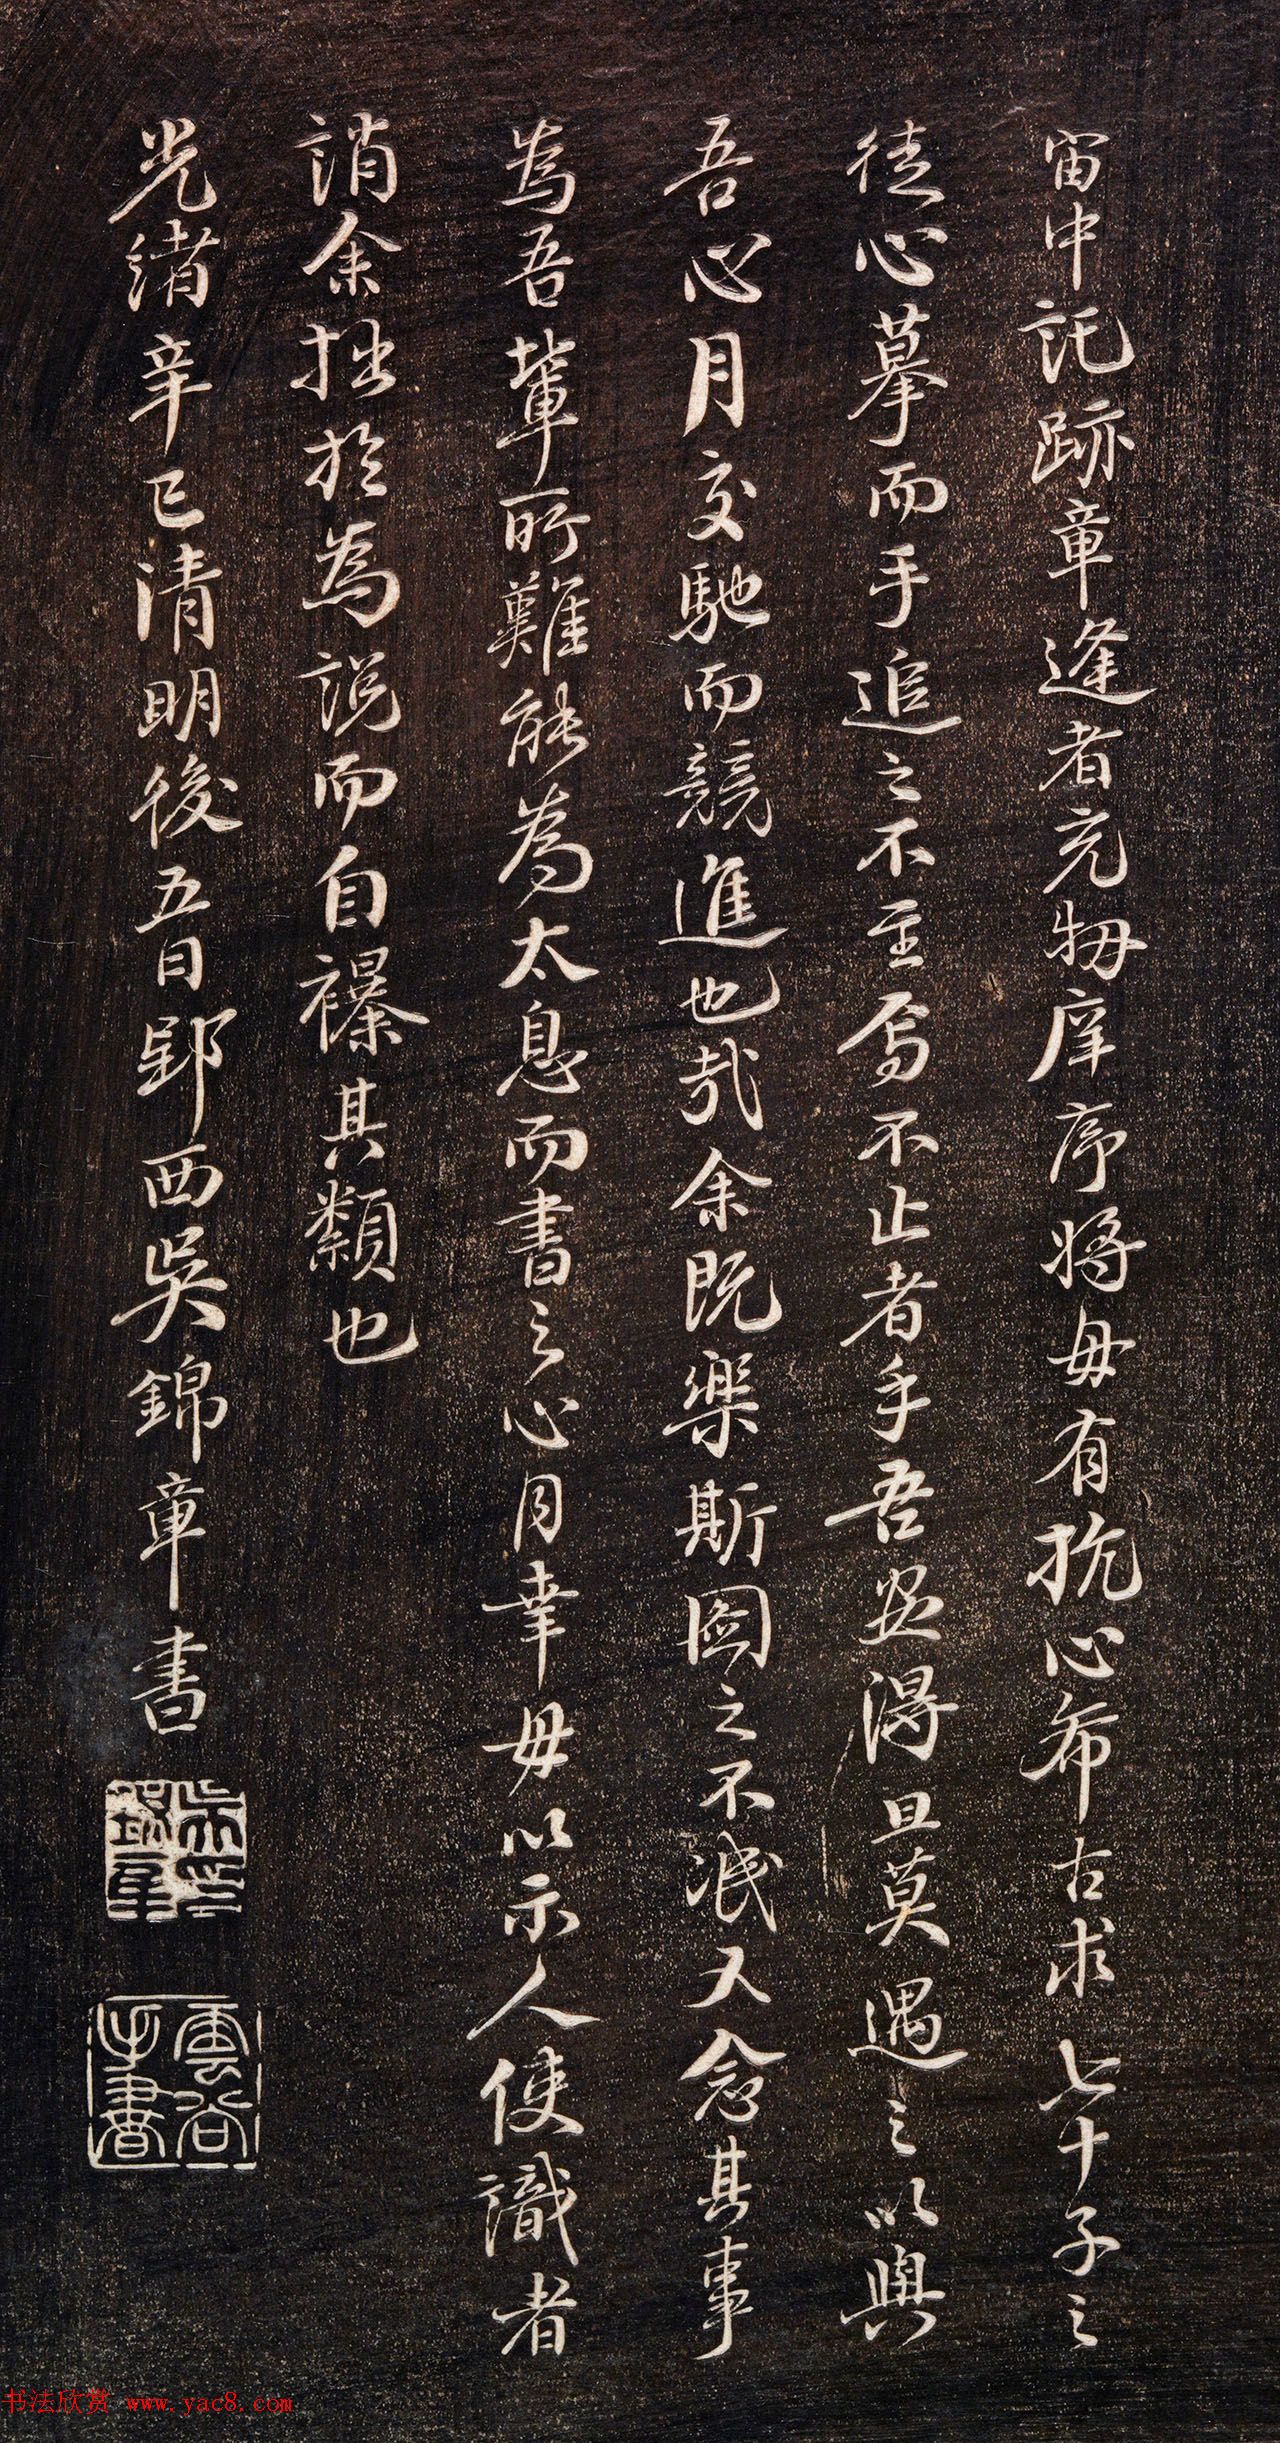 宙中託跡章逢者充牣庠序將毋有抗心希古求七十子之
徒心摹而手追之不至焉不止者乎吾惡得旦莫遇之以與
吾心月交馳而競進也哉余既樂斯圖之不泯又念其事
為吾輩所難能為太息而書之心月幸毋以示人使識者
誚余拙於為説而自襮其纇也
光緒辛巳清明後五日郢西吳錦章書
雲谷手書
书法欣赏 www.yac8.com